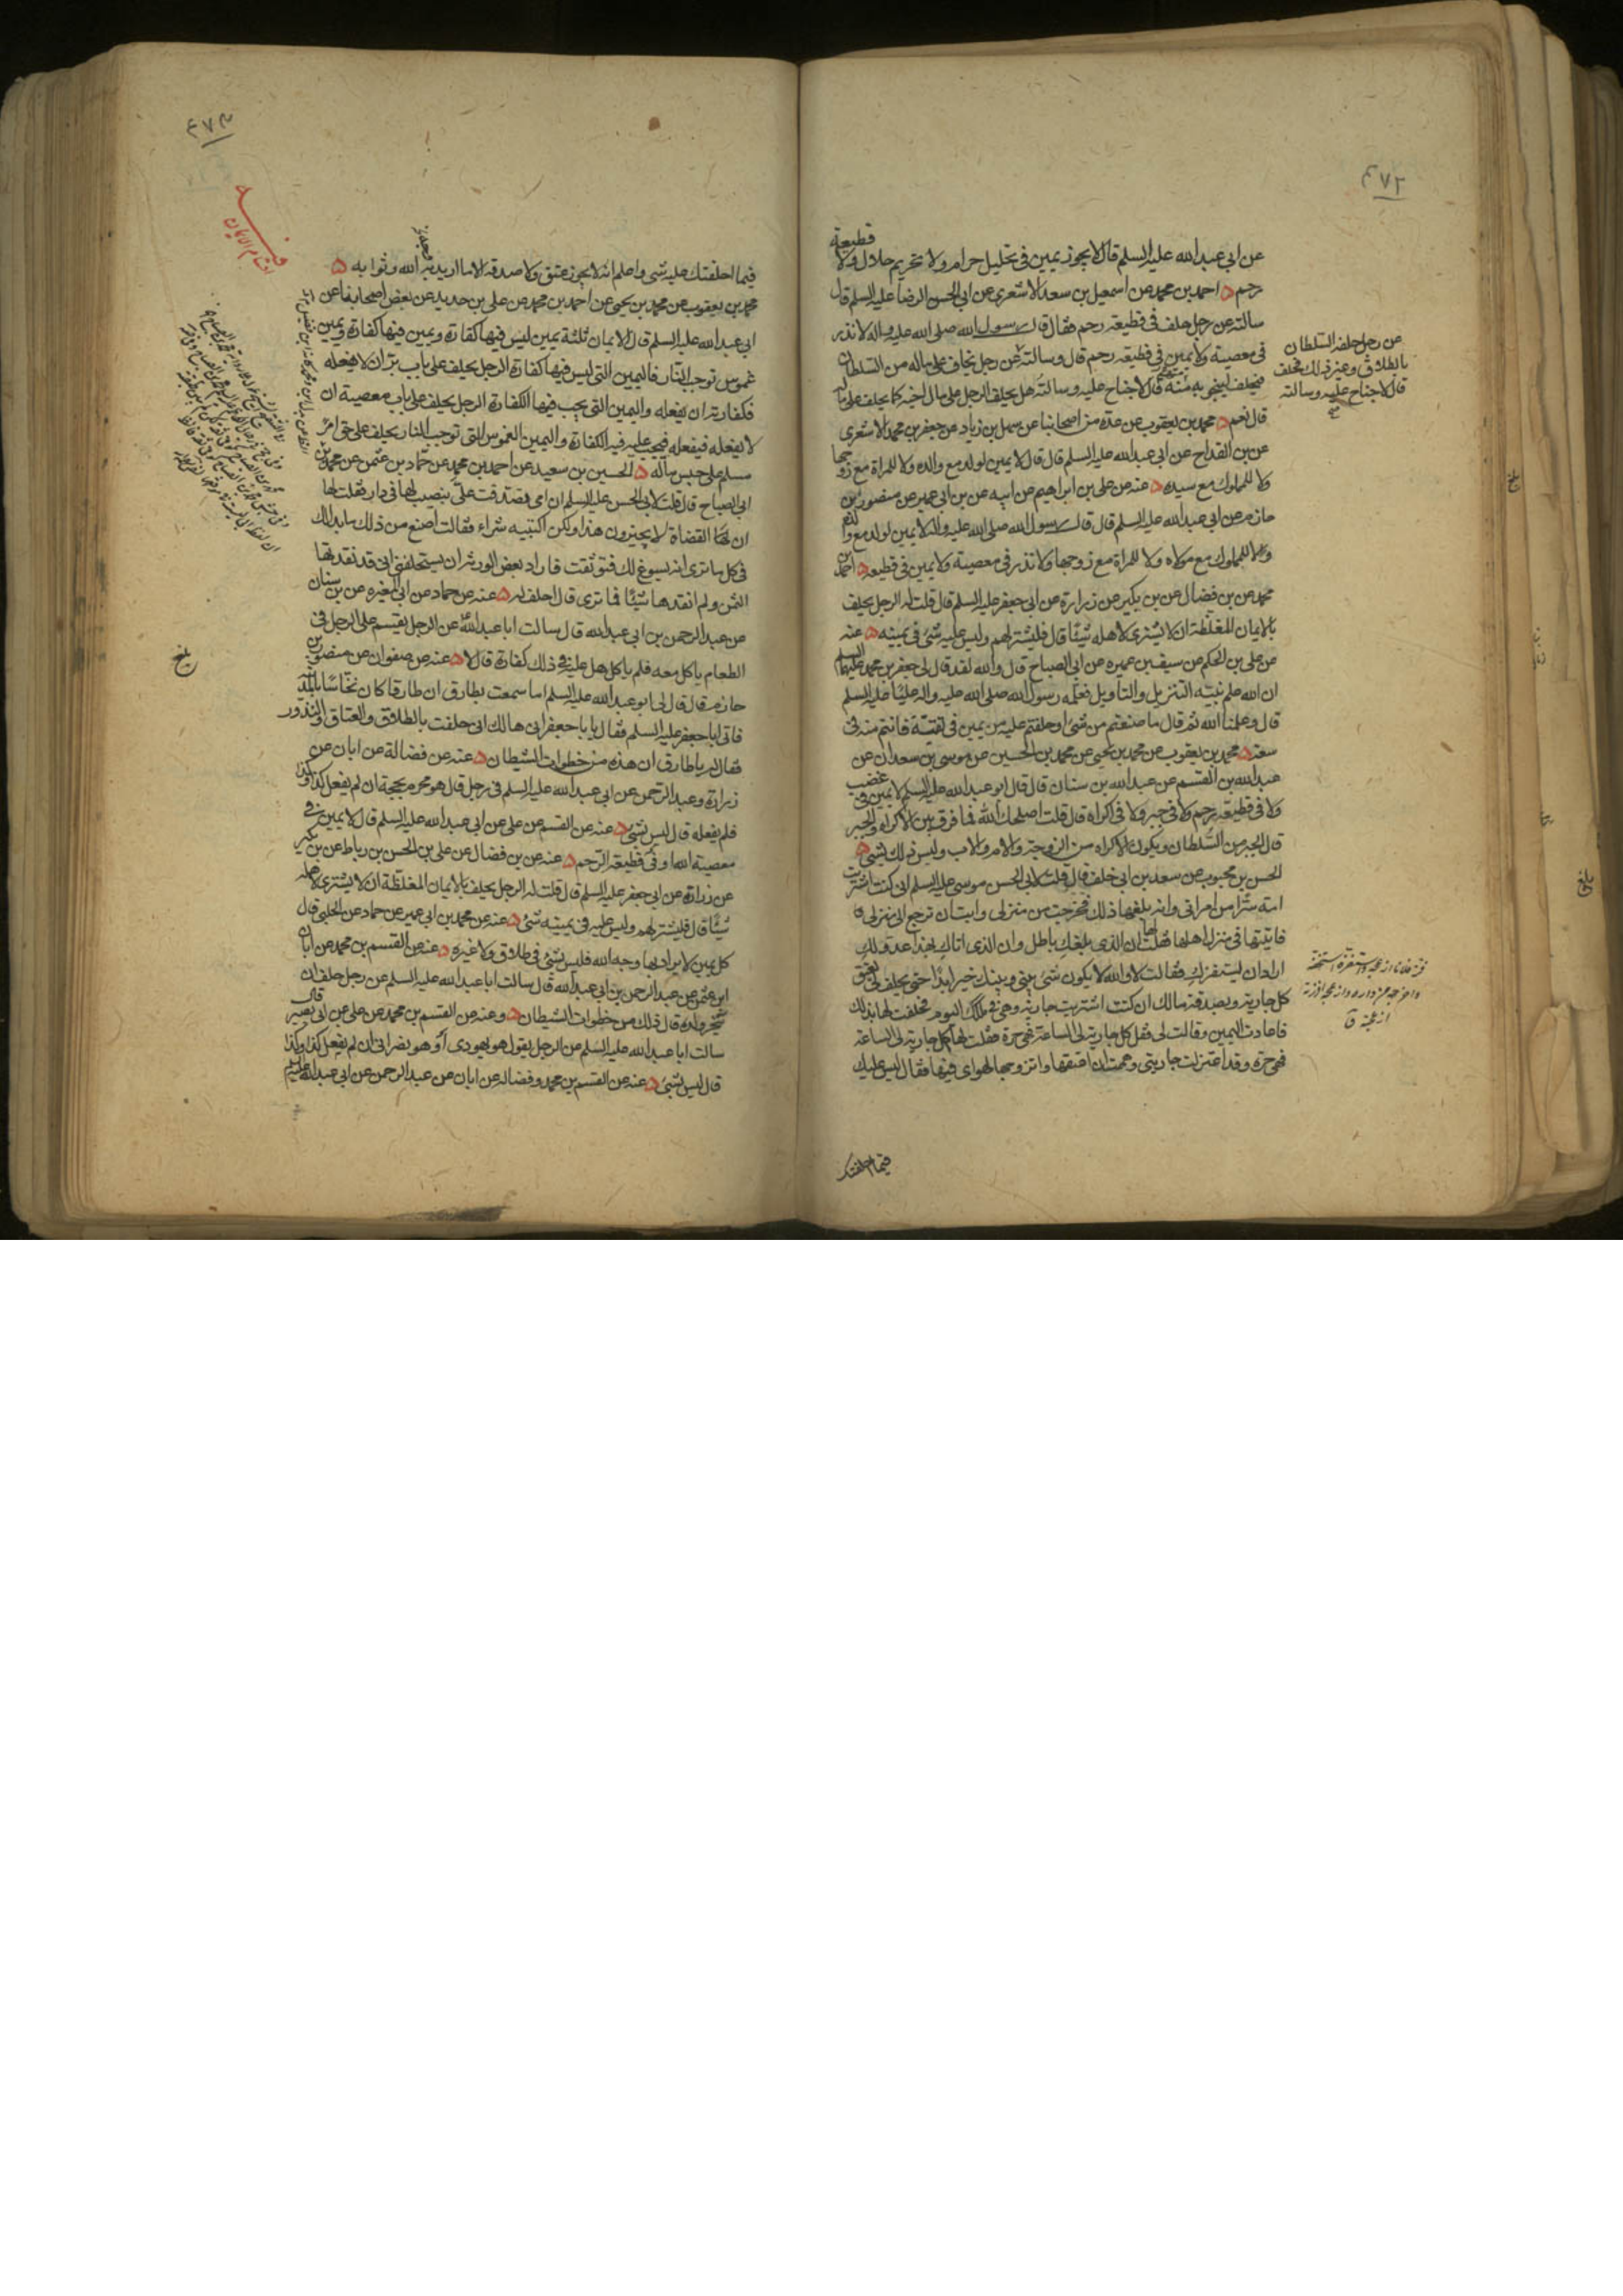 ٤٧٢
عن ابي عبد الله عليه السلم قال لا يجوز يمين في تحليل حرام ولا تحريم حلال ولا قطيعة
رحم ه احمد بن محمد عن اسمعيل بن سعد الاشعري عن ابي الحسن الرضا عليه السلم قال
سالته عن رجل حلف في قطيعة رحم فقال قال رسول الله صلى الله عليه واله لا نذر
في معصية ولا يمين في قطيعة رحم قال وسالته عن رجل يخاف على ماله من السلطان
فيحلف لينجو به منه قال لا جناح عليه وسالته هل يحلف الرجل على مال اخيه كما يحلف على ماله
قال نعم ه محمد بن يعقوب عن عدة من اصحابنا عن سهل بن زياد عن جعفر بن محمد الاشعري
عن بن القداح عن ابي عبد الله عليه السلم قال قال لا يمين لولد مع والده ولا للمراة مع زوجها
ولا للمملوك مع سيده ه عنه عن علي بن ابراهيم عن ابيه عن بن ابي عمير عن منصور بن
حازم عن ابي عبد الله عليه السلم قال قال رسول الله صلى الله عليه واله لا يمين لولد مع والده
ولا للمملوك مع مولاه ولا للمراة مع زوجها ولا نذر في معصية ولا يمين في قطيعة ه احمد بن
محمد عن بن فضال عن بن بكير عن زرارة عن ابي جعفر عليه السلم قال قلت له الرجل يحلف
بالايمان المغلظة ان لا يشتري لاهله شيئا قال فليشتر لهم وليس عليه شئ في يمينه ه عنه
عن علي بن الحكم عن سيف بن عميره عن ابي الصباح قال والله لقد قال لي جعفر بن محمد عليهما السلم
ان الله علم نبيه التنزيل والتاويل فعلمه رسول الله صلى الله عليه واله عليا عليه السلم
قال وعلمنا الله ثم قال ما صنعتم من شئ او حلفتم عليه من يمين في تقية فانتم منه في
سعة ه محمد بن يعقوب عن محمد بن يحيى عن محمد بن الحسين عن موسى بن سعدان عن
عبد الله بن القسم عن عبد الله بن سنان قال قال ابو عبد الله عليه السلم لا يمين في غضب
ولا في قطيعة رحم ولا في جبر ولا في اكراه قال قلت اصلحك الله فما فرق بين الاكراه والجبر
قال الجبر من السلطان ويكون الاكراه من الزوجة والام والاب وليس ذلك بشئ ه
الحسن بن محبوب عن سعد بن ابي خلف قال قلت لابي الحسن موسى عليه السلم اني كنت اشتريت
امة سرا من امراتي وانه بلغها ذلك فخرجت من منزلي وابت ان ترجع الى منزلي
فاتيتها في منزل اهلها فقلت لها ان الذي بلغك باطل وان الذي اتاك بهذا عدو لك
اراد ان يستفزك فقالت لا والله لا يكون شئ بيني وبينك خير ابدا حتى تحلف لي بعتق
كل جارية وبصدقة مالك ان كنت اشتريت جارية وهي في ملكك اليوم فحلفت لها بذلك
فاعادت اليمين وقالت لي فقل كل جارية لي الساعة فهي حرة فقلت لها كل جارية لي الساعة
فهي حرة وقد اعتزلت جاريتي وهممت ان اعتقها واتزوجها لهواي فيها فقال ليس عليك
فيما احلفتك
عن رجل حلفه السلطان
بالطلاق وغير ذلك فحلف
قال لا جناح عليه وسالته
٤٧٣
اقسام الايمان
فيما احلفتك عليه شئ واعلم انه لا يجوز عتق ولا صدقة الا ما اريد به الله وثوابه ه
محمد بن يعقوب عن محمد بن يحيى عن احمد بن محمد عن علي بن حديد عن بعض اصحابنا عن
ابي عبد الله عليه السلم قال الايمان ثلثة يمين ليس فيها كفارة ويمين فيها كفارة ويمين
غموس توجب النار فاليمين التي ليس فيها كفارة الرجل يحلف على باب بر ان لا يفعله
فكفارته ان يفعله واليمين التي يجب فيها الكفارة الرجل يحلف على باب معصية ان
لا يفعله فيفعله فيجب عليه فيه الكفارة واليمين الغموس التي توجب النار يحلف على حق امرئ
مسلم على حبس ماله ه الحسين بن سعيد عن احمد بن محمد عن حماد بن عثمن عن محمد بن
ابي الصباح قال قلت لابي الحسن عليه السلم ان امي تصدقت علي بنصيب لها في دار فقلت لها
ان القضاة لا يجيزون هذا ولكن اكتبيه شراء فقالت اصنع من ذلك ما بدا لك
في كل ما ترى انه يسوغ لك فتوثقت فاراد بعض الورثة ان يستحلفني اني قد نقدتها
الثمن ولم انقدها شيئا فما ترى قال احلف له ه عنه عن حماد عن ابن المغيره عن بن سنان
عن عبد الرحمن بن ابي عبد الله قال سالت ابا عبد الله عن الرجل يقسم على الرجل في
الطعام ياكل معه فلم ياكل هل عليه في ذلك كفارة قال لا ه عنه عن صفوان عن منصور بن
حازم قال قال لي ابو عبد الله عليه السلم اما سمعت بطارق ان طارقا كان نخاسا بالمدينة
فاتى ابا جعفر عليه السلم فقال يا با جعفر اني هالك اني حلفت بالطلاق والعتاق والنذور
فقال له يا طارق ان هذه من خطوات الشيطان ه عنه عن فضالة عن ابان عن
زرارة وعبد الرحمن عن ابي عبد الله عليه السلم في رجل قال هو محرم بحجة ان لم يفعل كذا وكذا
فلم يفعله قال ليس بشئ ه عنه عن القسم عن علي عن ابي عبد الله عليه السلم قال لا يمين في
معصية الله او في قطيعة الرحم ه عنه عن بن فضال عن علي بن الحسن بن رباط عن بن بكير
عن زرارة عن ابي جعفر عليه السلم قال قلت له الرجل يحلف بالايمان المغلظة ان لا يشتري لاهله
شيئا قال فليشتر لهم وليس عليه في يمينه شئ ه عنه عن محمد بن ابي عمير عن حماد عن الحلبي قال
كل يمين لا يراد بها وجه الله فليس بشئ في طلاق ولا غيره ه عنه عن القسم بن محمد عن ابان
ابن عثمن عن عبد الرحمن بن ابي عبد الله قال سالت ابا عبد الله عليه السلم عن رجل حلف ان
ينحر ولده قال ذلك من خطوات الشيطان ه وعنه عن القسم بن محمد عن علي عن ابي بصير قال
سالت ابا عبد الله عليه السلم عن الرجل يقول هو يهودي او هو نصراني ان لم يفعل كذا وكذا
قال ليس بشئ ه عنه عن القسم بن محمد وفضالة عن ابان عن عبد الرحمن عن ابي عبد الله عليه السلم
بلغ